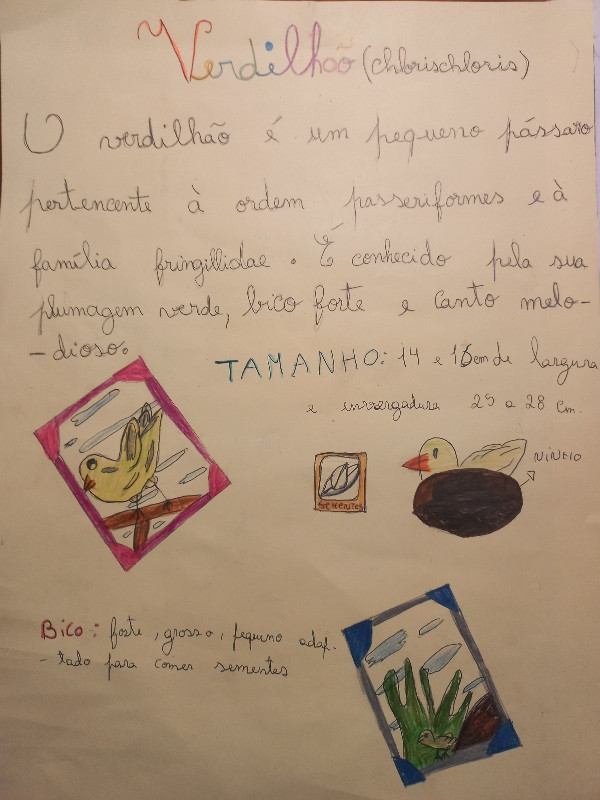 Verdilhão (chlorischloris)
O verdilhão é um pequeno pássaro
pertencente à ordem passeriformes e à
família fringillidae. É conhecido pela sua
plumagem verde, bico forte e canto melo-
-dioso.
TAMANHO: 14 e 16 cm de largura
e envergadura 25 a 28 cm.
SEMENTES
NINHO
Bico: forte, grosso, pequeno adap-
-tado para comer sementes